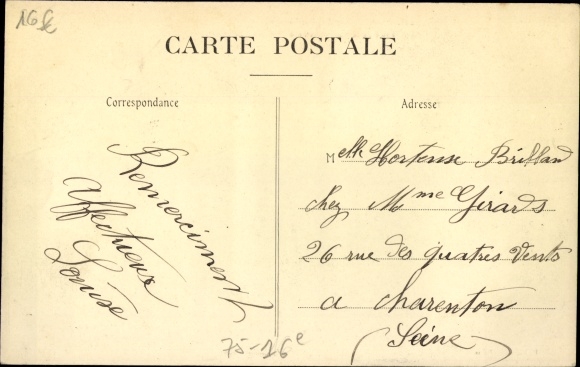 16e
CARTE POSTALE
Correspondance
Adresse
Remerciment
affectueux
Louise
Melle Hortense Brilland
chez Mme Girards
26 rue des quatres vents
a charenton
(Seine)
75-16e